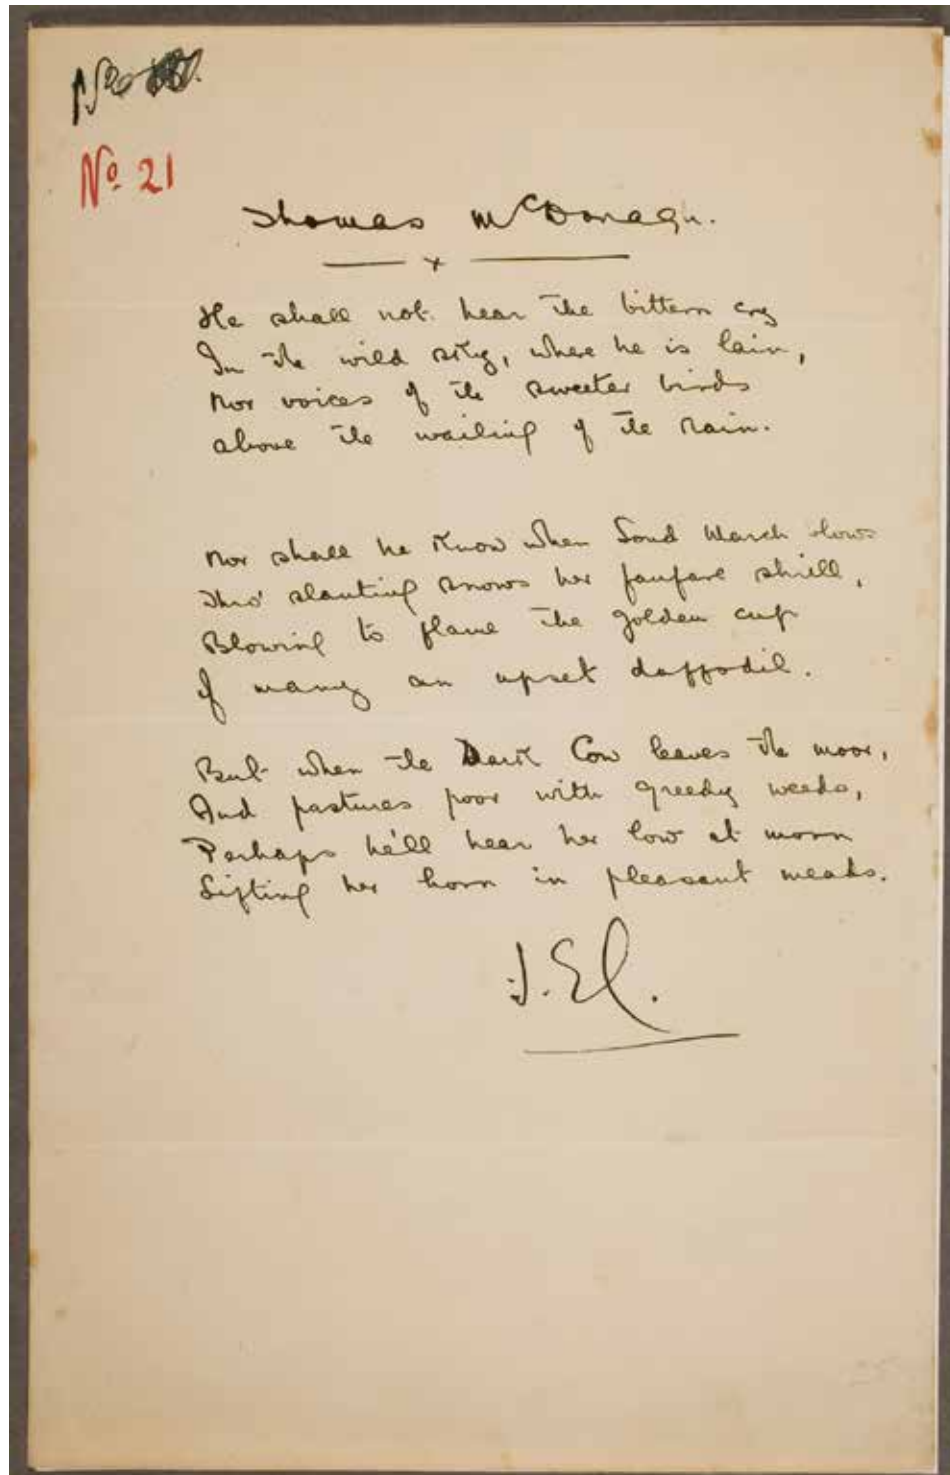 No
No. 21
Thomas McDonagh.
x
He shall not hear the bittern cry
In the wild sky, where he is lain,
Nor voices of the sweeter birds
above the wailing of the rain.
Nor shall he know when Loud March blows
Thro' slanting snows her fanfare shrill,
Blowing to flame the golden cup
of many an upset daffodil.
But when the Dark Cow leaves the moor,
And pastures poor with greedy weeds,
Perhaps he'll hear her low at morn
Lifting her horn in pleasant meads.